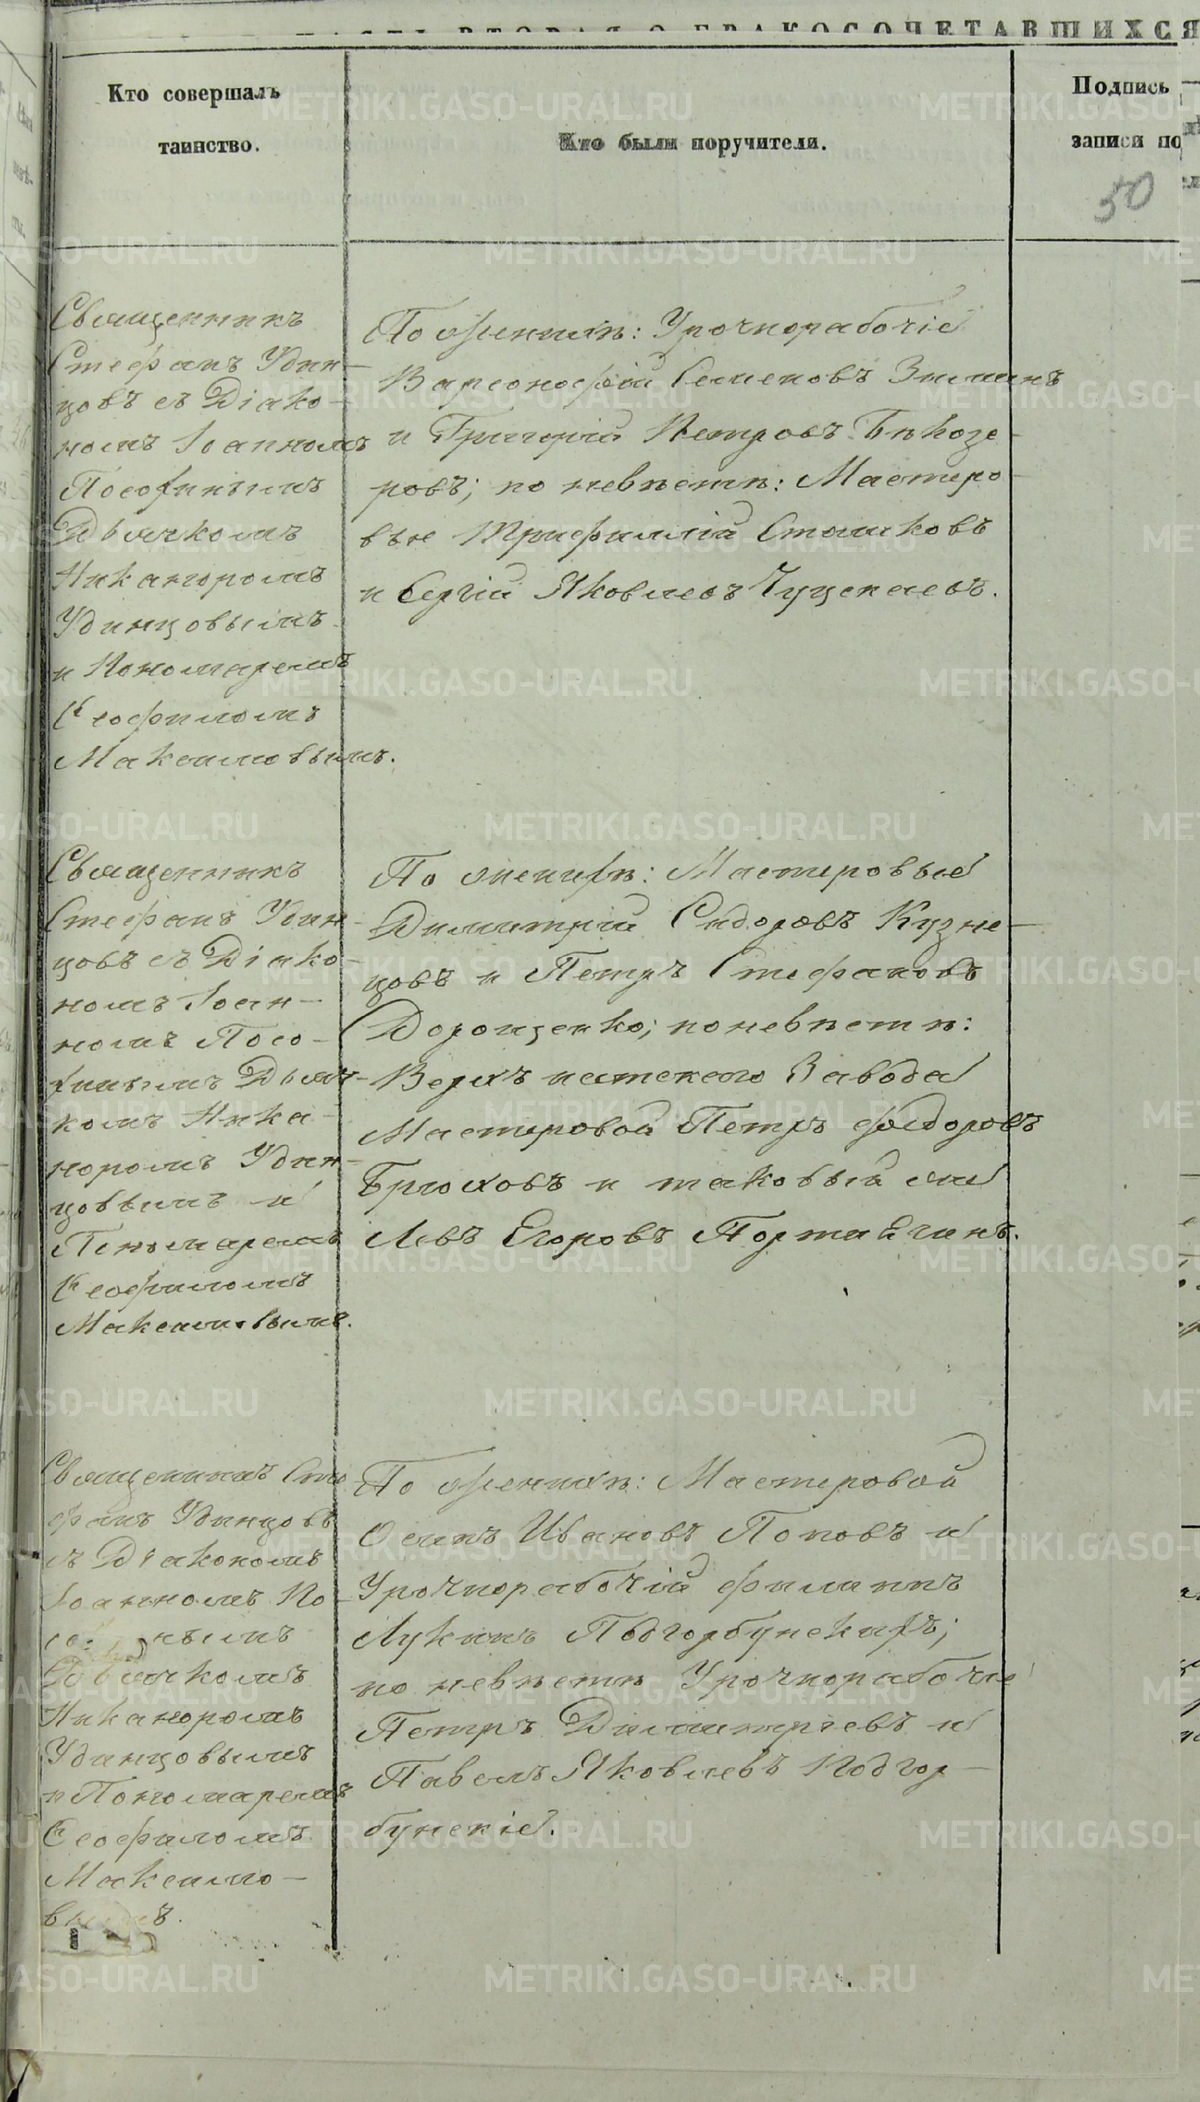 ЧАСТЬ ВТОРАЯ О БРАКОСОЧЕТАВШИХСЯ
Кто совершалъ
таинство.
Кто были поручители.
Подпись
записи по
50
Священникъ
Стефанъ Удин-
цовъ съ Діако-
номъ Іоанномъ
Дьячкомъ
Никаноромъ
Удинцовымъ
и Пономаремъ
Ѳеофиломъ
Максимовымъ.
По женихѣ: Урочнорабочіе
Варсонофій Семеновъ Зиминъ
и Григорій Петровъ Бѣлозе-
ровъ; по невѣстѣ: Мастеро-
вые Трифиллій Сташковъ
и Сергій Яковлевъ
Священникъ
Стефанъ Удин-
цовъ съ Діако-
номъ Іоан-
номъ
Дьяч-
комъ Ника-
норомъ Удин-
цовымъ и
Пономаремъ
Ѳеофиломъ
Максимовымъ.
По женихѣ: Мастеровые
Димитрій Сидоровъ Кузне-
цовъ и Петръ Стефановъ
Дорощенко; по невѣстѣ:
Верхъ исетскаго Завода
Мастеровой Петръ Федоровъ
Брюховъ и таковый же
Левъ Егоровъ Портнягинъ.
Священникъ Сте-
фанъ Удинцовъ
съ Діакономъ
Іоанномъ По-
Дьячкомъ
Никаноромъ
Удинцовымъ
и Пономаремъ
Ѳеофиломъ
Максимо-
По женихѣ: Мастеровой
Осипъ Ивановъ Поповъ и
Урочнорабочій Филиппъ
Лукинъ Подгорбунскихъ;
по невѣстѣ Урочнорабочіе
Петръ Димитріевъ и
Павелъ Яковлевъ Подгор-
бунскіе.
METRIKI.GASO-URAL.RU